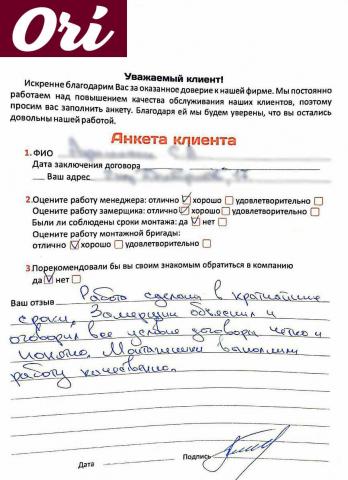 Ori
Уважаемый клиент!
Искренне благодарим Вас за оказанное доверие к нашей фирме. Мы постоянно
работаем над повышением качества обслуживания наших клиентов, поэтому
просим вас заполнить анкету. Благодаря ей мы будем уверены, что вы остались
довольны нашей работой.
Анкета клиента
1. ФИО
Дата заключения договора
Ваш адрес
2. Оцените работу менеджера: отлично хорошо удовлетворительно
Оцените работу замерщика: отлично хорошо удовлетворительно
Были ли соблюдены сроки монтажа: да нет
Оцените работу монтажной бригады:
отлично хорошо удовлетворительно
3. Порекомендовали бы вы своим знакомым обратиться в компанию
да нет
Ваш отзыв Работа сделана в кратчайшие
сроки. Замерщик объяснил и
оговорил все условия договора четко и
понятно. Монтажники выполнили
работу качественно.
Дата Подпись